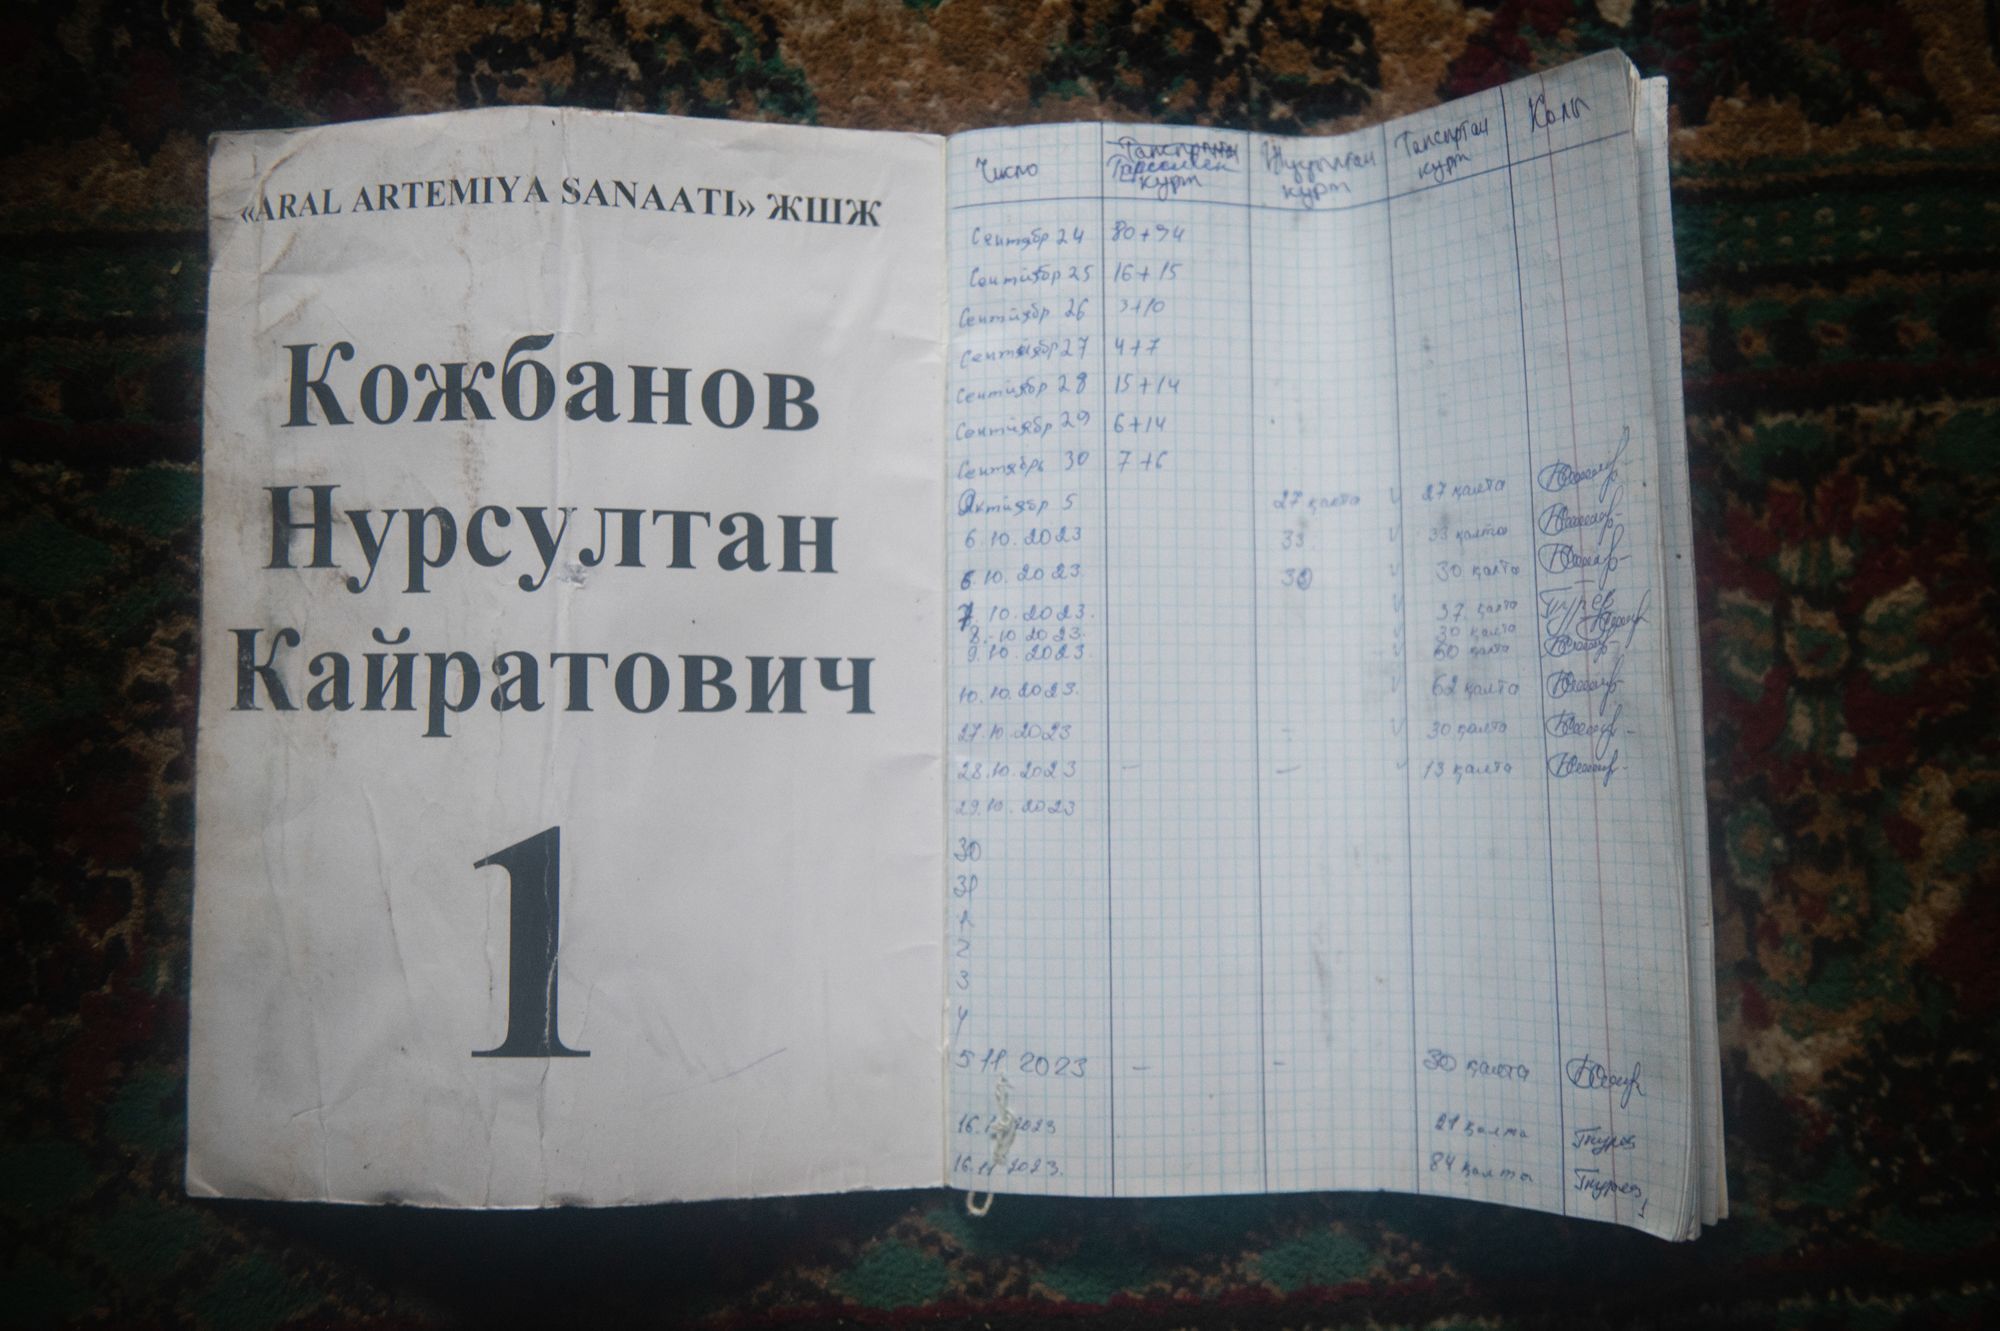 «ARAL ARTEMIYA SANAATI» ЖШЖ
Кожбанов
Нурсултан
Кайратович
1
Число
курт
курт
Тапсырған курт
Қолы
Сентябр 24 80+94
Сентйабр 25 16+15
Сентйябр 26 3+10
Сентйябр 27 4+7
Сентйябр 28 15+14
Сентйябр 29 6+14
Сентябрь 30 7+6
Октйабр 5 27 қалта V 27 қалта
6.10.2023 33 V 33 қалта
6.10.2023 30 V 30 қалта
7.10.2023. V 37 қалта
8.10.2023. V 30 қалта
9.10.2023. V 60 қалта
10.10.2023. V 62 қалта
27.10.2023 - V 30 қалта
28.10.2023 — — V 13 қалта
29.10.2023
30
31
1
2
3
4
5 11. 2023 — - 30 қалта
16.1 2023 21 қалта
16.11 2023. 84 қалта